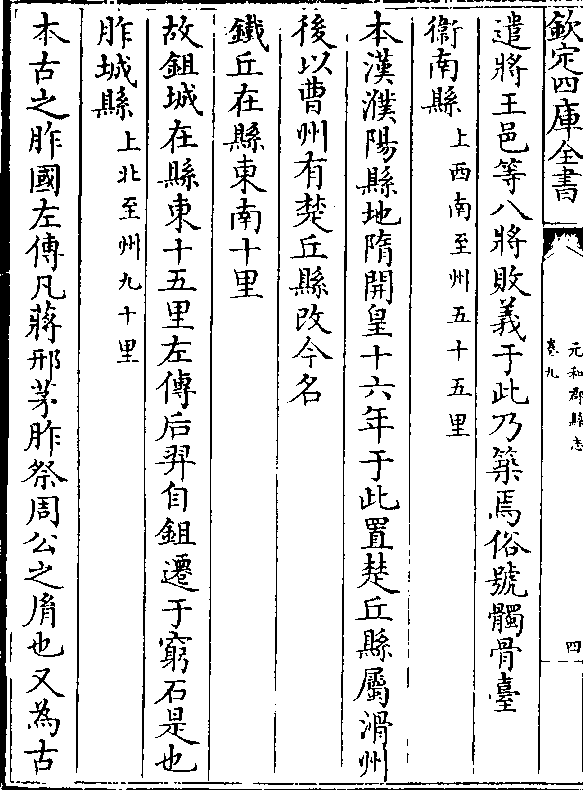 欽定四庫全書
元和郡縣志
卷九
四
遣將王邑等八將敗義于此乃築焉俗號髑骨臺
衞南縣上西南至州五十五里
本漢濮陽縣地隋開皇十六年于此置楚丘縣屬滑州
後以曹州有楚丘縣改今名
鐵丘在縣東南十里
故鉏城在縣東十五里左傳后羿自鉏遷于窮石是也
胙城縣上北至州九十里
本古之胙國左傳凡蔣邢茅胙祭周公之胤也又為古